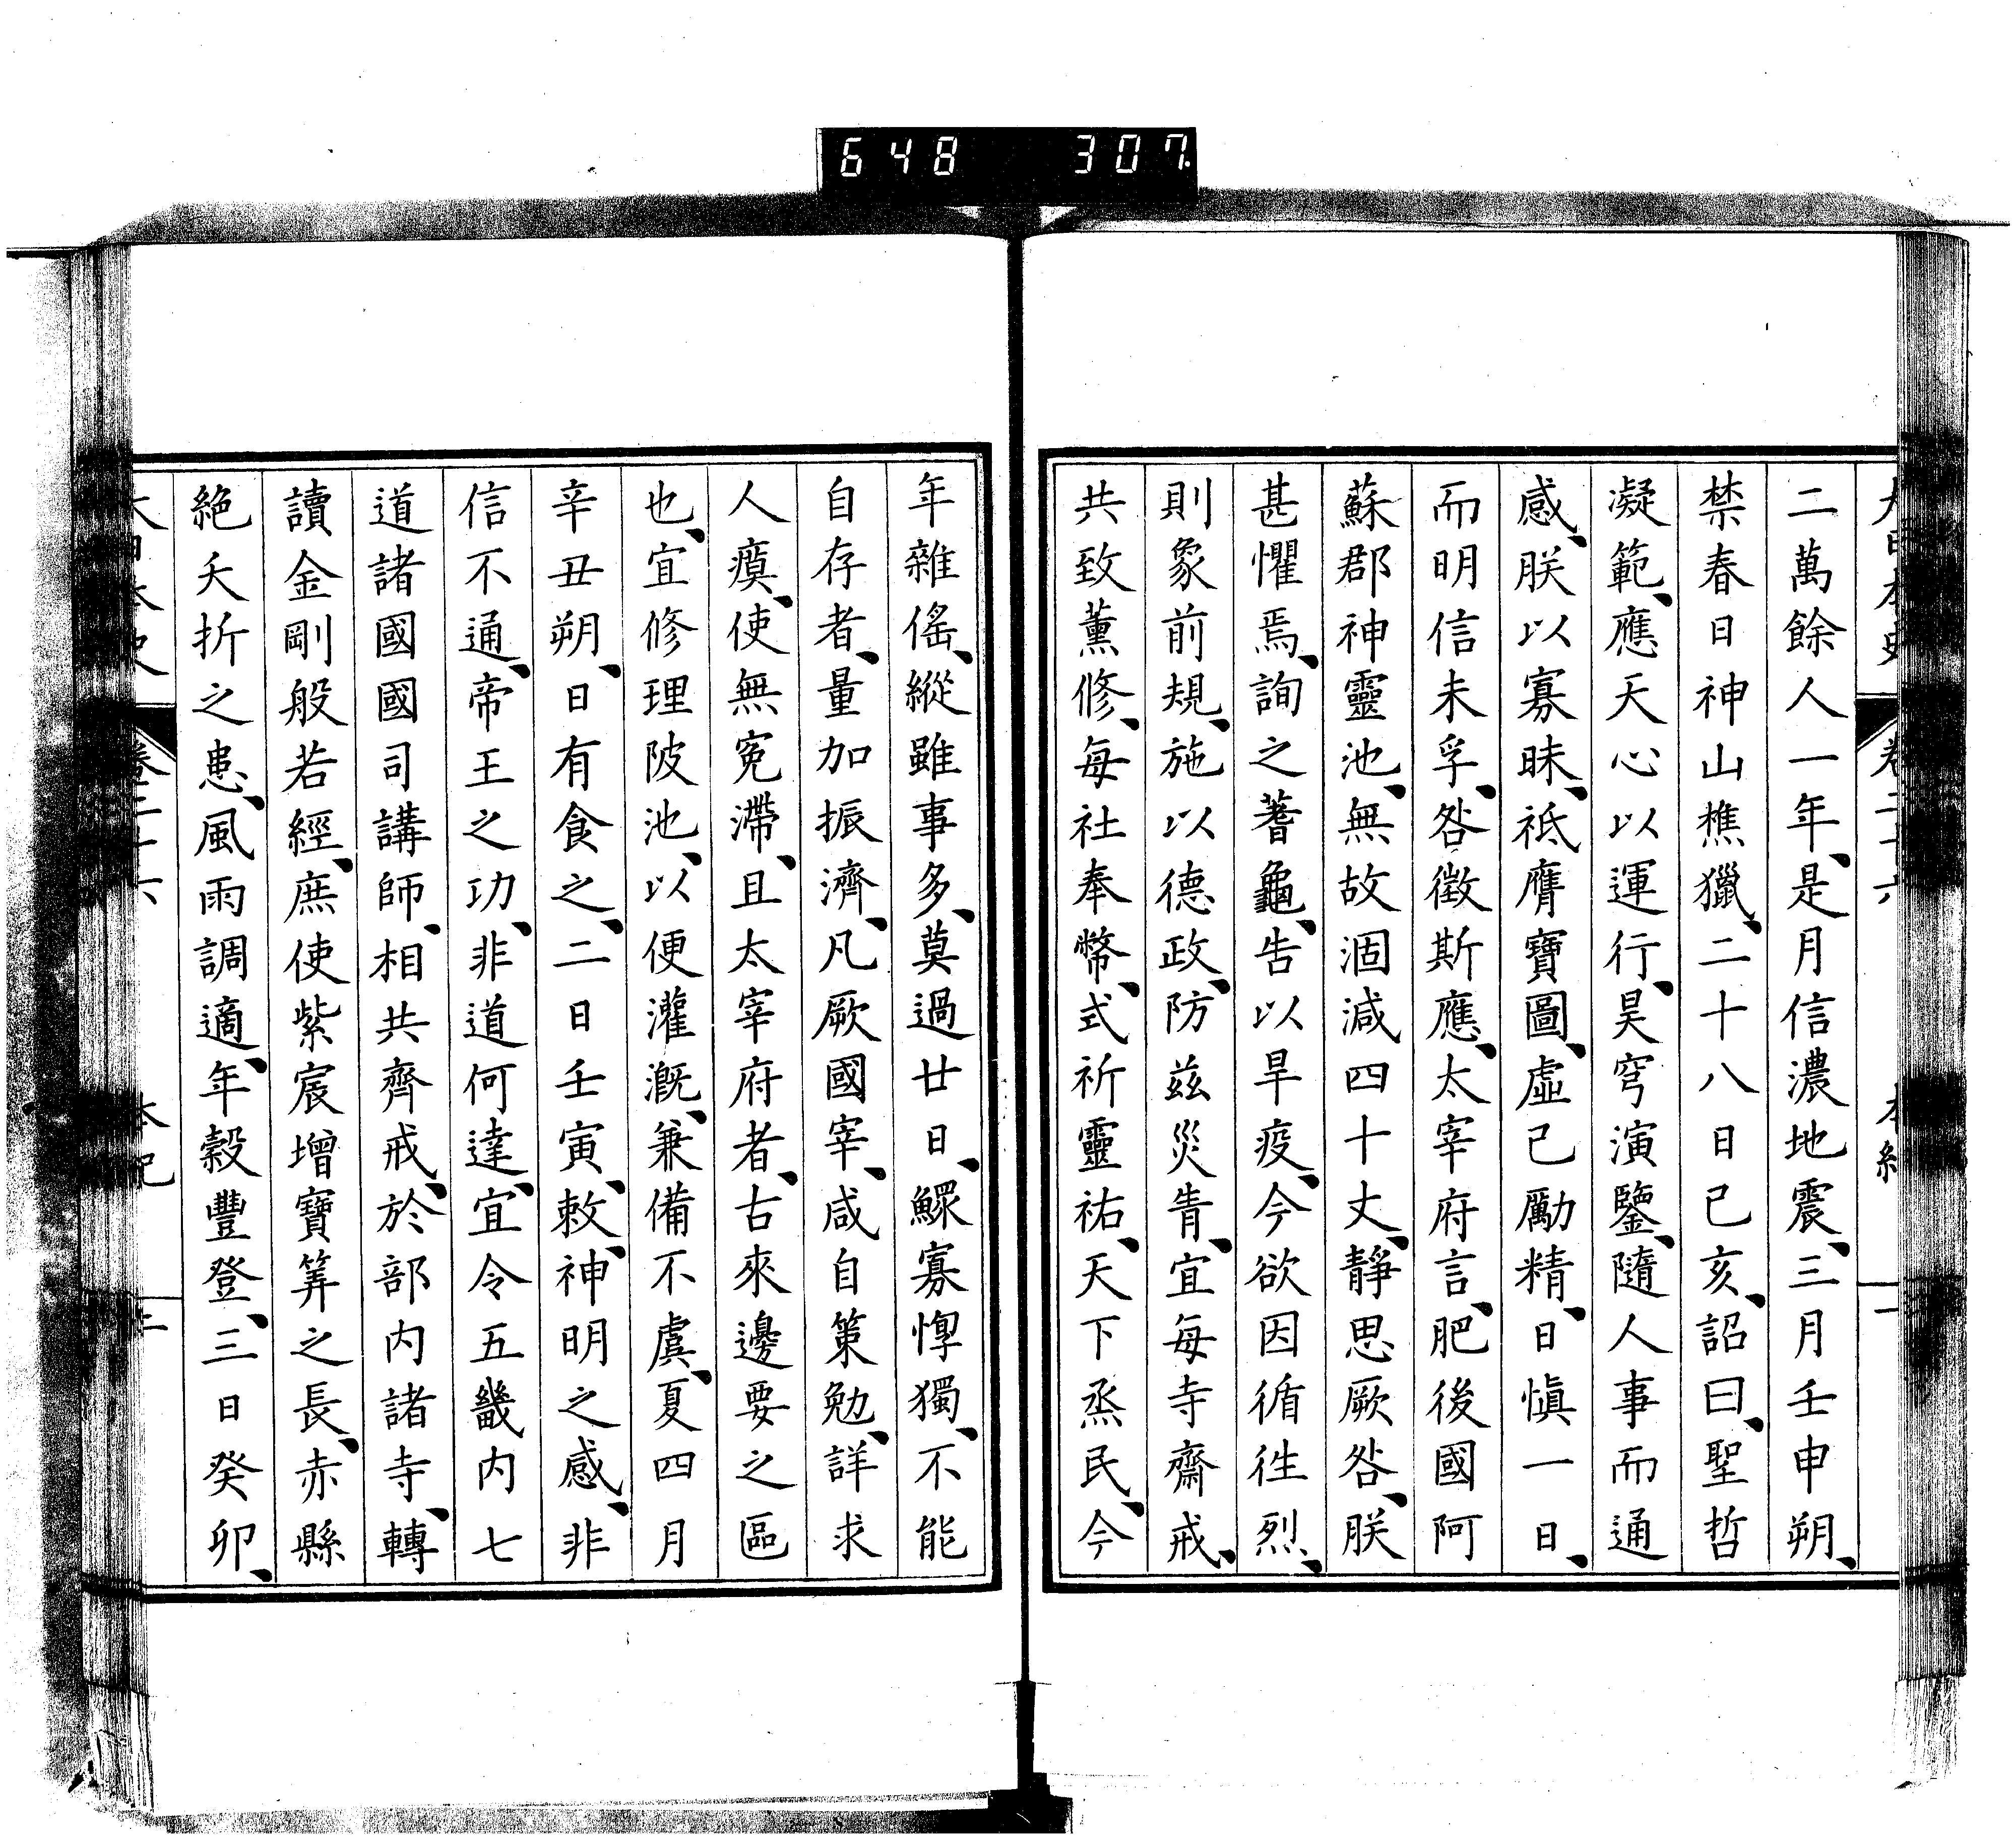 648 307
大日本史 卷二十六 本紀 一
二萬餘人一年、是月信濃地震、三月壬申朔、
禁春日神山樵獵、二十八日己亥、詔曰、聖哲
凝範、應天心以運行、昊穹演鑒、隨人事而通
感、朕以寡昧、祗膺寶圖、虛己勵精、日愼一日、
而明信未孚、咎徵斯應、太宰府言、肥後國阿
蘇郡神靈池、無故涸減四十丈、靜思厥咎、朕
甚懼焉、詢之蓍龜、告以旱疫、今欲因循徃烈、
則象前規、施以德政、防玆災眚、宜每寺齋戒、
共致薰修、每社奉幣、式祈靈祐、天下烝民、今
年雜徭、縱雖事多、莫過廿日、鰥寡惸獨、不能
自存者、量加振濟、凡厥國宰、咸自策勉、詳求
人瘼、使無寃滯、且太宰府者、古來邊要之區
也、宜修理陂池、以便灌漑、兼備不虞、夏四月
辛丑朔、日有食之、二日壬寅、敕、神明之感、非
信不通、帝王之功、非道何達、宜令五畿内七
道諸國國司講師、相共齊戒、於部内諸寺、轉
讀金剛般若經、庶使紫宸增寶筭之長、赤縣
絶夭折之患、風雨調適、年穀豐登、三日癸卯、
大日本史 卷二十六 本紀 二